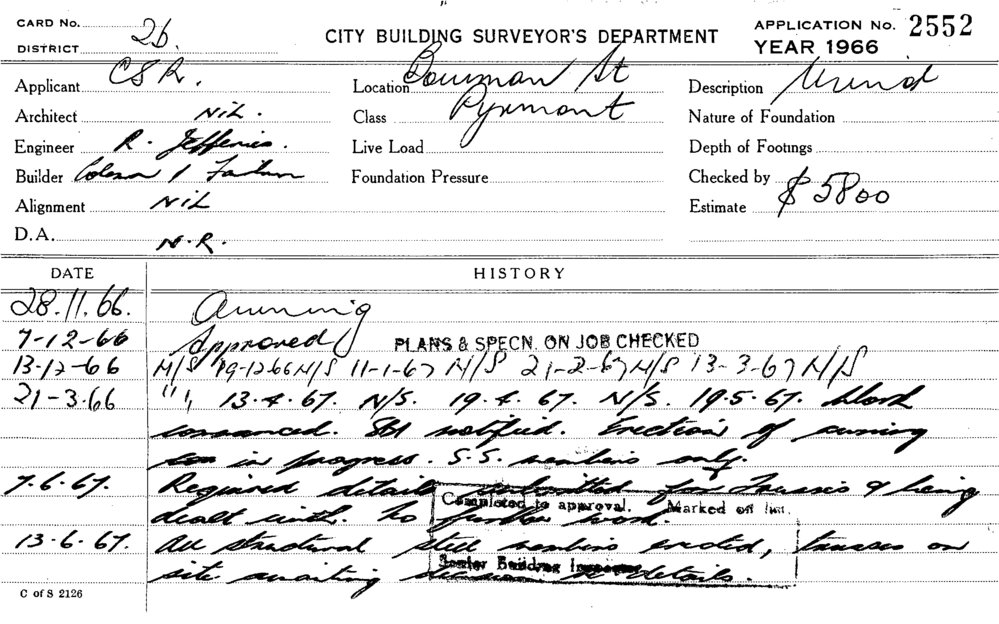 CARD No. 2b.
DISTRICT
CITY BUILDING SURVEYOR'S DEPARTMENT
APPLICATION No. 2552
YEAR 1966
Applicant CSR.
Location Bowman St
Description
Architect NiL.
Class Pyrmont
Nature of Foundation
Engineer R. Jefferies.
Live Load
Depth of Footings
Builder
Foundation Pressure
Checked by
Alignment NiL
Estimate $5800
D.A. N.R.
DATE HISTORY
28.11.66. Awning
7-12-66 Approved PLANS & SPECN. ON JOB CHECKED
13-12-66 N/S 19-12-66 N/S 11-1-67 N/S 21-2-67 N/S 13-3-67 N/S
21-3-66 " " 13.4.67. N/S. 19.4.67. N/S. 19.5.67. Work
commenced. SBI notified. Erection of awning
in progress. S.S. members only.
7.6.67. Required details submitted for Trusses & being
dealt with. No further work.
Completed to approval. Marked off list.
13.6.67. All structural steel members erected, trusses on
site awaiting decision re details.
Senior Building Inspector
C of S 2126